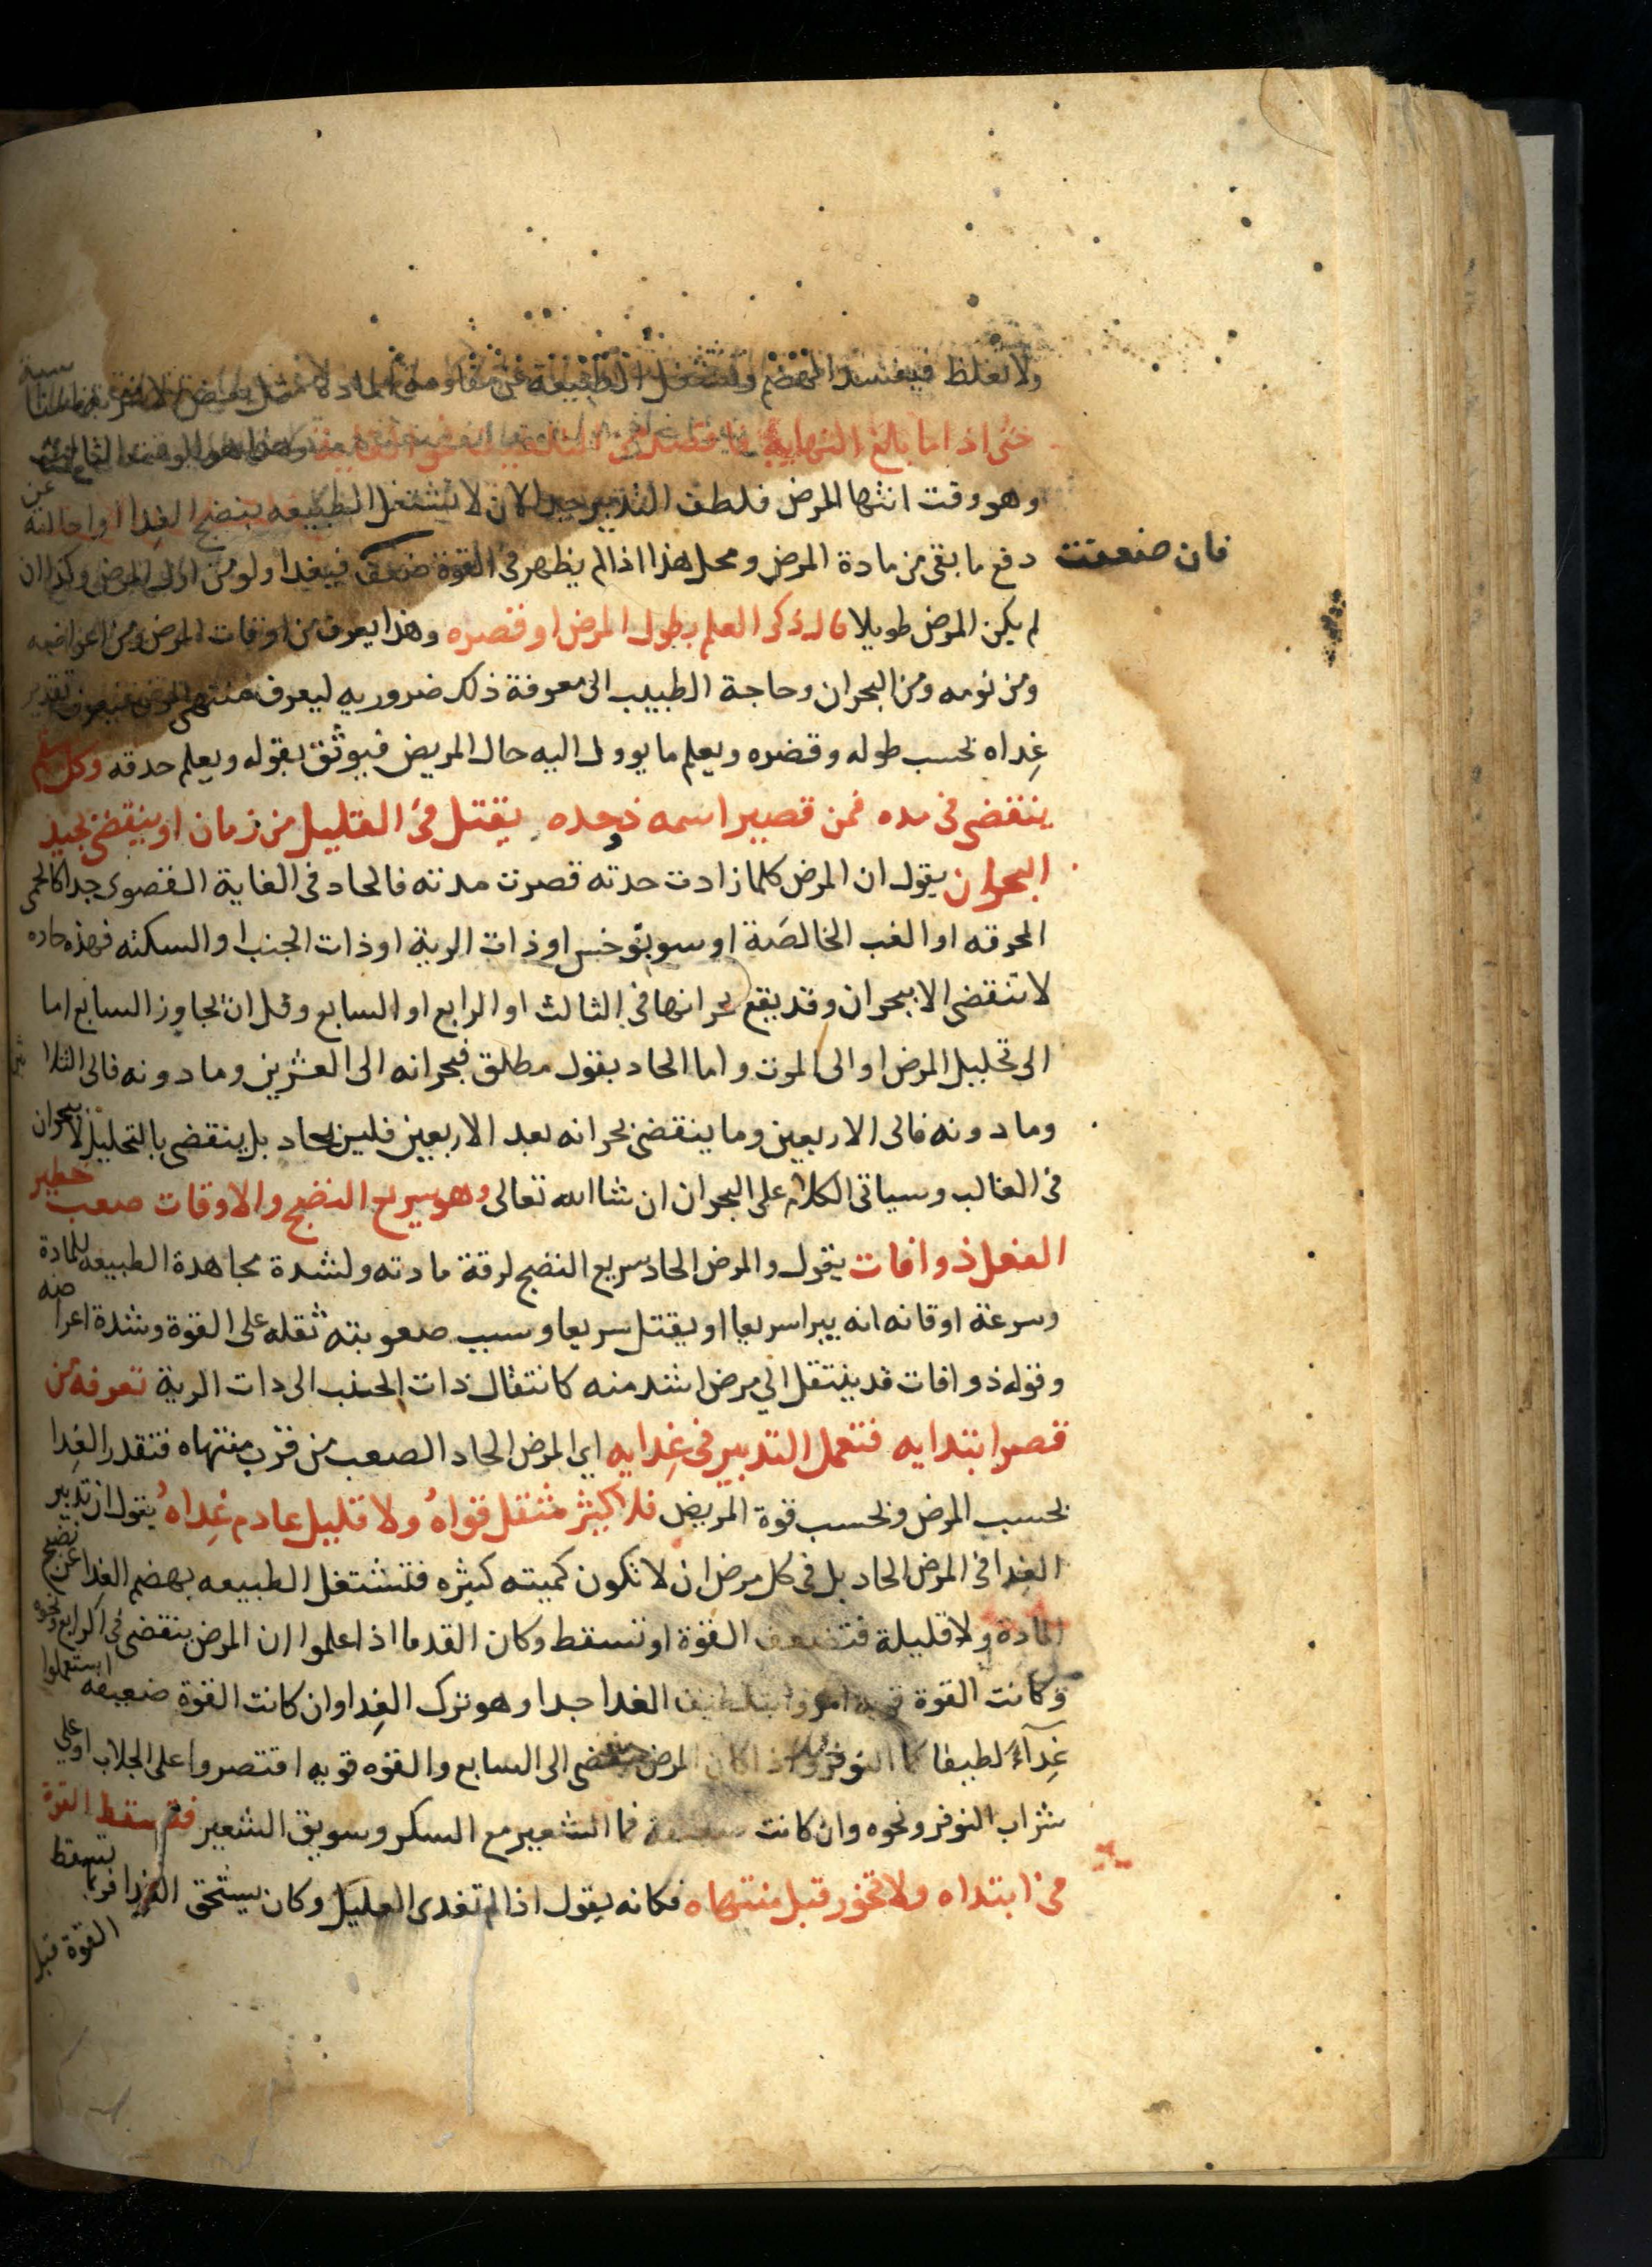 ولا تغلظ فيفسد الهضم وتشتغل الطبيعة عن مقاومة
حتى اذا ما بالغ النهاية فاقصد الى التلطيف في الغاية هذا هو الوقت الثالث
وهو وقت انتها المرض فلطف التدبير جدا لان لا تشتغل الطبيعه بنضج الغدا او احالته عن
دفع ما بقى من مادة المرض ومحل هذا اذا لم يظهر فى القوة ضعف فيغدا ولو من اول المرض وكذا ان
فان ضعفت
لم يكن المرض طويلا قال ذكر العلم بطول المرض او قصره وهذا يعرف من اوقات المرض ومن اعراضه
ومن نومه ومن البحران وحاجة الطبيب الى معرفة ذلك ضروريه ليعرف منتهى المرض فيعرف تقدير
غداه بحسب طوله وقصره ويعلم ما يوول اليه حال المريض فيوثق بقوله ويعلم حدقه وكل سقم
ينقضى فى مده فمن قصير اسمه ذو حده يقتل فى القليل من زمان او ينقضى بجيد
البحران يقول ان المرض كلما زادت حدته قصرت مدته فالحاد فى الغاية القصوى جدا كالحمى
المحرقه او الغب الخالصة او سونوخس او ذات الرية او ذات الجنب او السكته فهذه حاده
لا تنقضى الا ببحران وقد يقع بحرانها فى الثالث او الرابع او السابع وقل ان تجاوز السابع اما
الى تحليل المرض او الى الموت واما الحاد بقول مطلق فبحرانه الى العشرين وما دونه فالى الثلاثين
وما دونه فالى الاربعين وما ينقضى بحرانه بعد الاربعين فليس بحاد بل ينقضى بالتحليل لا ببحران
فى الغالب وسياتى الكلام على البحران ان شا الله تعالى وهو سريع النضج والاوقات صعب خطير
الفعل ذو افات يقول والمرض الحاد سريع النضج لرقة مادته ولشدة مجاهدة الطبيعه للمادة
وسرعة اوقاته انه يبرا سريعا او يقتل سريعا وسبب صعوبته ثقله على القوة وشدة اعراضه
وقوله ذو افات قد ينتقل الي مرض اشد منه كانتقال ذات الجنب الى ذات الرية تعرفه من
قصر ابتدايه فتعمل التدبير فى غدايه اي المرض الحاد الصعب من قرب منتهاه فتقدر الغدا
بحسب المرض وبحسب قوة المريض فلا كثير مثقل قواه ولا قليل عادم غداه يقول ان تدبير
الغدا فى المرض الحاد بل فى كل مرض ان لا تكون كميته كثيره فتشتغل الطبيعه بهضم الغدا عن نضج
المادة ولا قليلة فتضعف القوة او تسقط وكان القدما اذا علموا ان المرض ينقضى فى الرابع ونحوه
وكانت القوة قويه امروا بتلطيف الغدا جدا وهو ترك الغدا وان كانت القوة ضعيفه استعملوا
غدآء لطيفا كما النوفر واذا كان المرض ينقضى الى السابع والقوه قويه اقتصروا على الجلاب او على
شراب النوفر ونحوه وان كانت ضعيفة فما الشعير مع السكر وسويق الشعير فتسقط القوة
من ابتداه ولا تخور قبل منتهاه فكانه يقول اذا لم تغدى العليل وكان يستحق الغدا فربما تسقط
القوة قبل